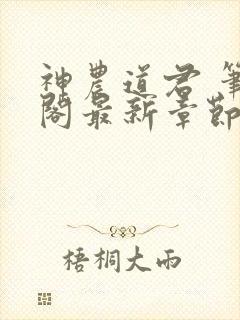 神農道君 筆
閣最新章節
梧桐大雨